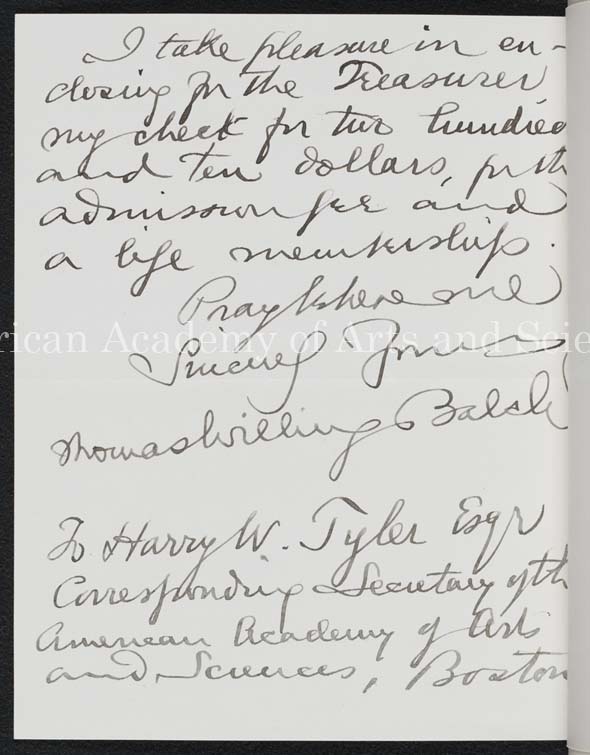 I take pleasure in en-
closing for the Treasurer
my check for two hundred
and ten dollars, for th
admission fee and
a life membership.
Pray believe me
rican Academy of Arts and Scie
Sincerely Yours
Thomas Willing Balch
To Harry W. Tyler Esqr
Corresponding Secretary of th
American Academy of Arts
and Sciences, Boston